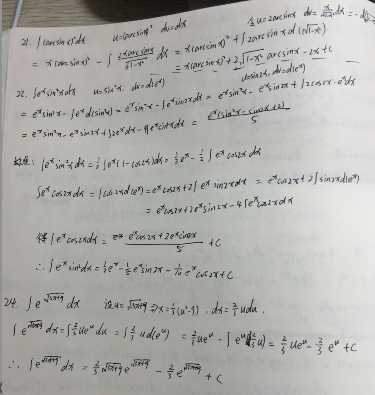 21. ∫(arcsinx)²dx u=(arcsinx)² dv=dx
= x(arcsinx)² - ∫ 2xarcsinx/√(1-x²) dx = x(arcsinx)² + ∫2arcsinx d(√(1-x²))
= x(arcsinx)² + 2√(1-x²) arcsinx - 2x + C
22. ∫eˣsin²xdx u=sin²x. dv=d(eˣ)
= eˣsin²x - ∫eˣd(sin²x) = eˣsin²x - ∫eˣsin2xdx = eˣsin²x - eˣsin2x + ∫2cos2x·eˣdx
= eˣsin²x - eˣsin2x + ∫2eˣdx - 4∫eˣsin²xdx =
: ∫eˣsin²xdx = ½∫eˣ(1-cos2x)dx = ½eˣ - ½∫eˣcos2xdx
∫eˣcos2xdx = ∫cos2xd(eˣ) = eˣcos2x + 2∫eˣsin2xdx = eˣcos2x + 2∫sin2xd(eˣ)
= eˣcos2x + 2eˣsin2x - 4∫eˣcos2xdx
∴ ∫eˣsin²xdx = ½eˣ - ⅕eˣsin2x - 1/10 eˣcos2x + C
24. ∫e^√(3x+9) dx 设u=√(3x+9) x=⅓(u²-9). dx=⅔udu.
∫e^√(3x+9) dx = ∫⅔ueᵘdu = ∫⅔ud(eᵘ) = ⅔ueᵘ - ∫eᵘd(⅔u) = ⅔ueᵘ - ⅔eᵘ + C
∴ ∫e^√(3x+9) dx = ⅔√(3x+9) e^√(3x+9) - ⅔e^√(3x+9) + C